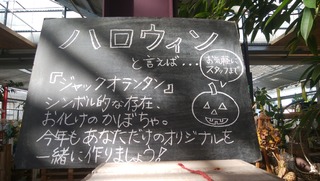 ハロウィン
と言えば...
お気軽に
スタッフまで
『ジャックオランタン』
シンボル的な存在、
お化けのかぼちゃ。
今年もあなただけのオリジナルを
一緒に作りましょう!